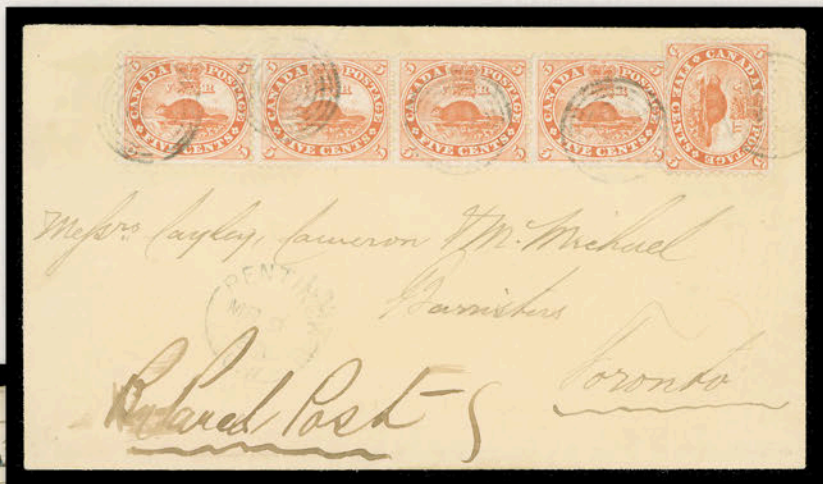 5 CANADA POSTAGE 5
V R
5 FIVE CENTS 5
5 CANADA POSTAGE 5
V R
5 FIVE CENTS 5
5 CANADA POSTAGE 5
V R
5 FIVE CENTS 5
5 CANADA POSTAGE 5
V R
5 FIVE CENTS 5
5 CANADA POSTAGE 5
5 FIVE CENTS 5
Messrs Cayley, Cameron & McMichael
Barristers
Toronto
Parcel Post